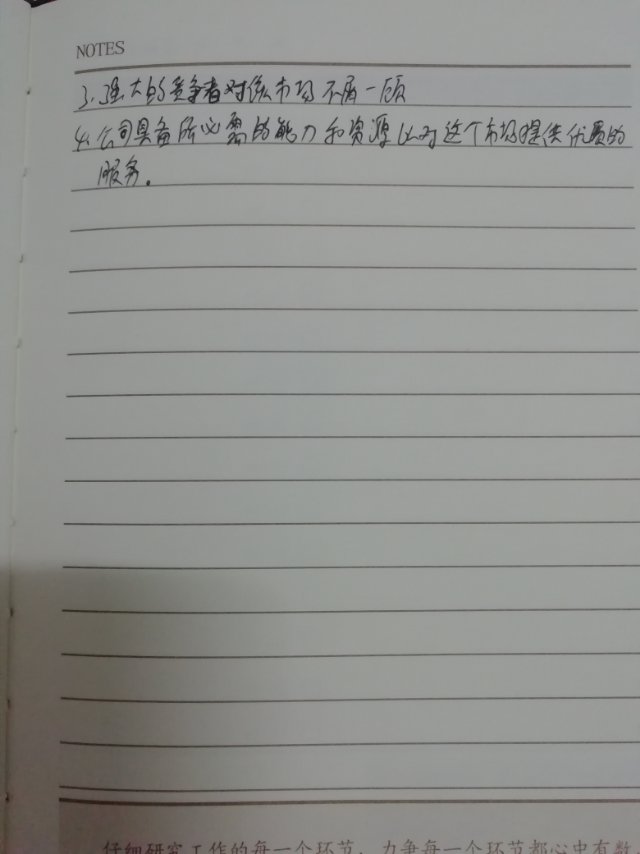 NOTES
3、强大的竞争者对该市场不屑一顾
4、公司具备所必需的能力和资源以对这个市场提供优质的
服务。
仔细研究工作的每一个环节，力争每一个环节都心中有数